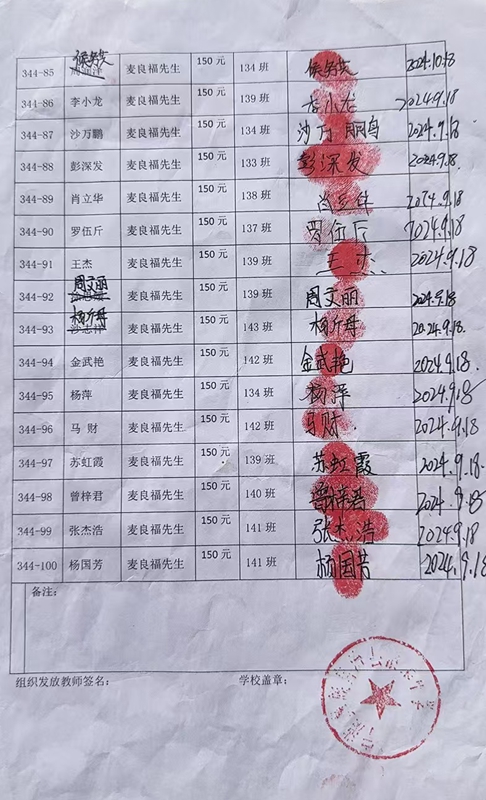 344-85 侯幼芡 麦良福先生 150元 134班 2024.10.18
344-86 李小龙 麦良福先生 150元 139班 李小龙 2024.9.18
344-87 沙万鹏 麦良福先生 150元 134班 沙万鹏 2024.9.18.
344-88 彭深发 麦良福先生 150元 133班 彭深发 2024.9.18.
344-89 肖立华 麦良福先生 150元 138班 2024.9.18
344-90 罗伍斤 麦良福先生 150元 137班 罗伍斤 2024.9.18
344-91 王杰 麦良福先生 150元 139班 王杰 2024.9.18
344-92 周文丽 麦良福先生 150元 139班 周文丽 2024.9.18
344-93 麦良福先生 150元 143班 2024.9.18.
344-94 金武艳 麦良福先生 150元 142班 金武艳 2024.9.18.
344-95 杨萍 麦良福先生 150元 134班 杨萍 2024.9.18
344-96 马财 麦良福先生 150元 142班 马财. 2024.9.18
344-97 苏虹霞 麦良福先生 150元 139班 苏虹霞 2024.9.18.
344-98 曾梓君 麦良福先生 150元 140班 曾梓君 2024.9.18
344-99 张杰浩 麦良福先生 150元 141班 张杰浩 2024.9.18
344-100 杨国芳 麦良福先生 150元 141班 杨国芳 2024.9.18
备注:
组织发放教师签名: 学校盖章;